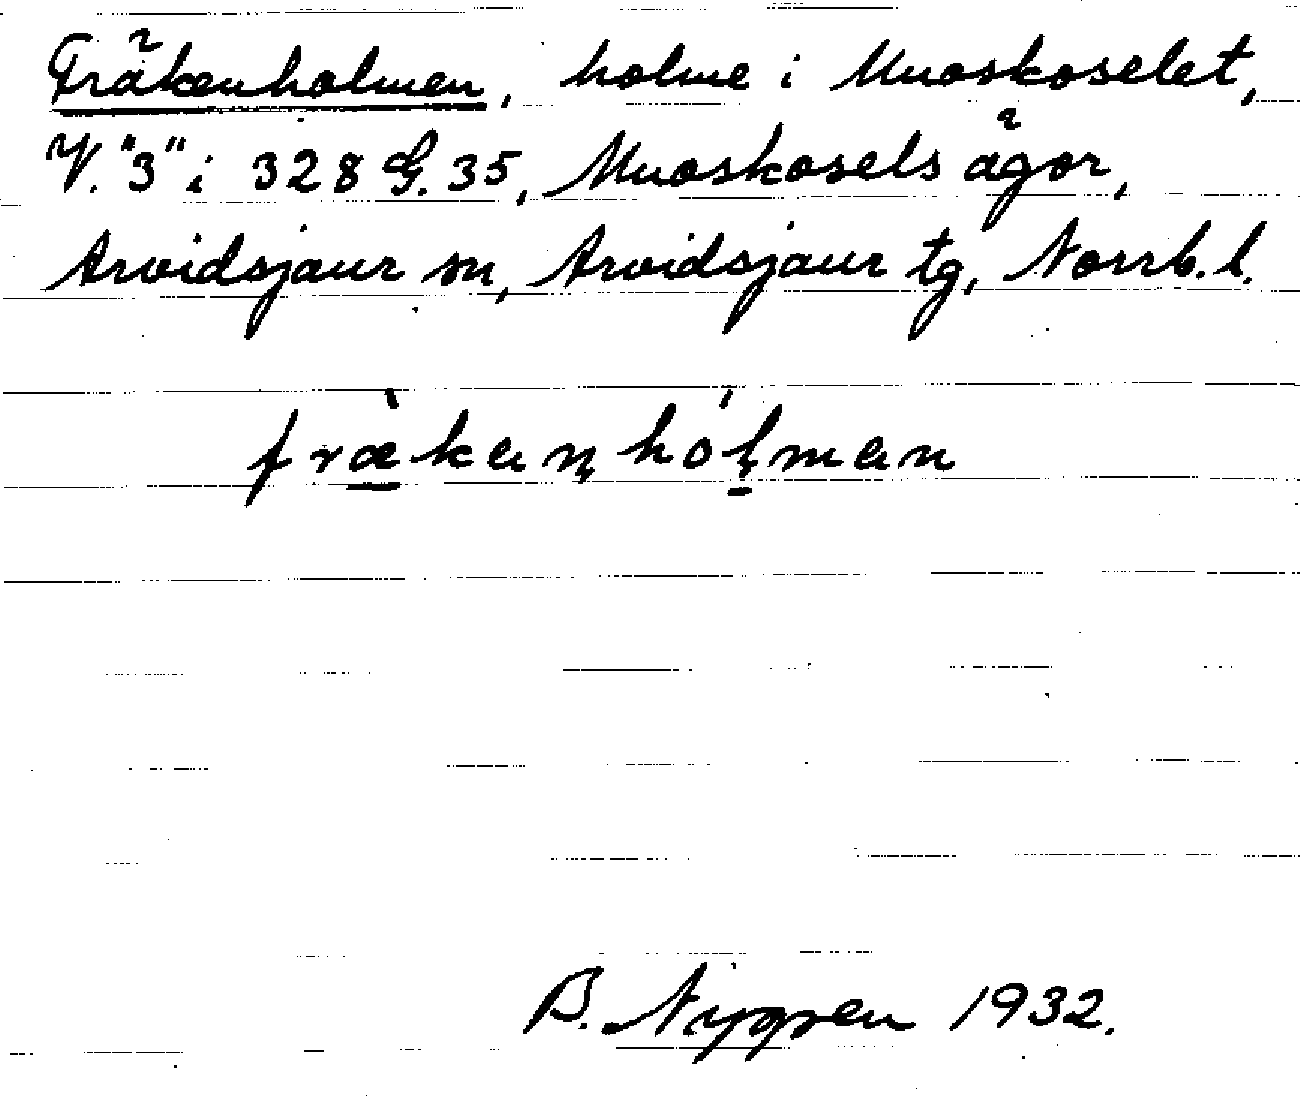 Fräkenholmen, holme i Muoskoselet,
V. "3" i 328 G. 35, Muoskosels ägor,
Arvidsjaur sn, Arvidsjaur tg, Norrb. l.
fræ̀kenhólmen
B. Nygren 1932.